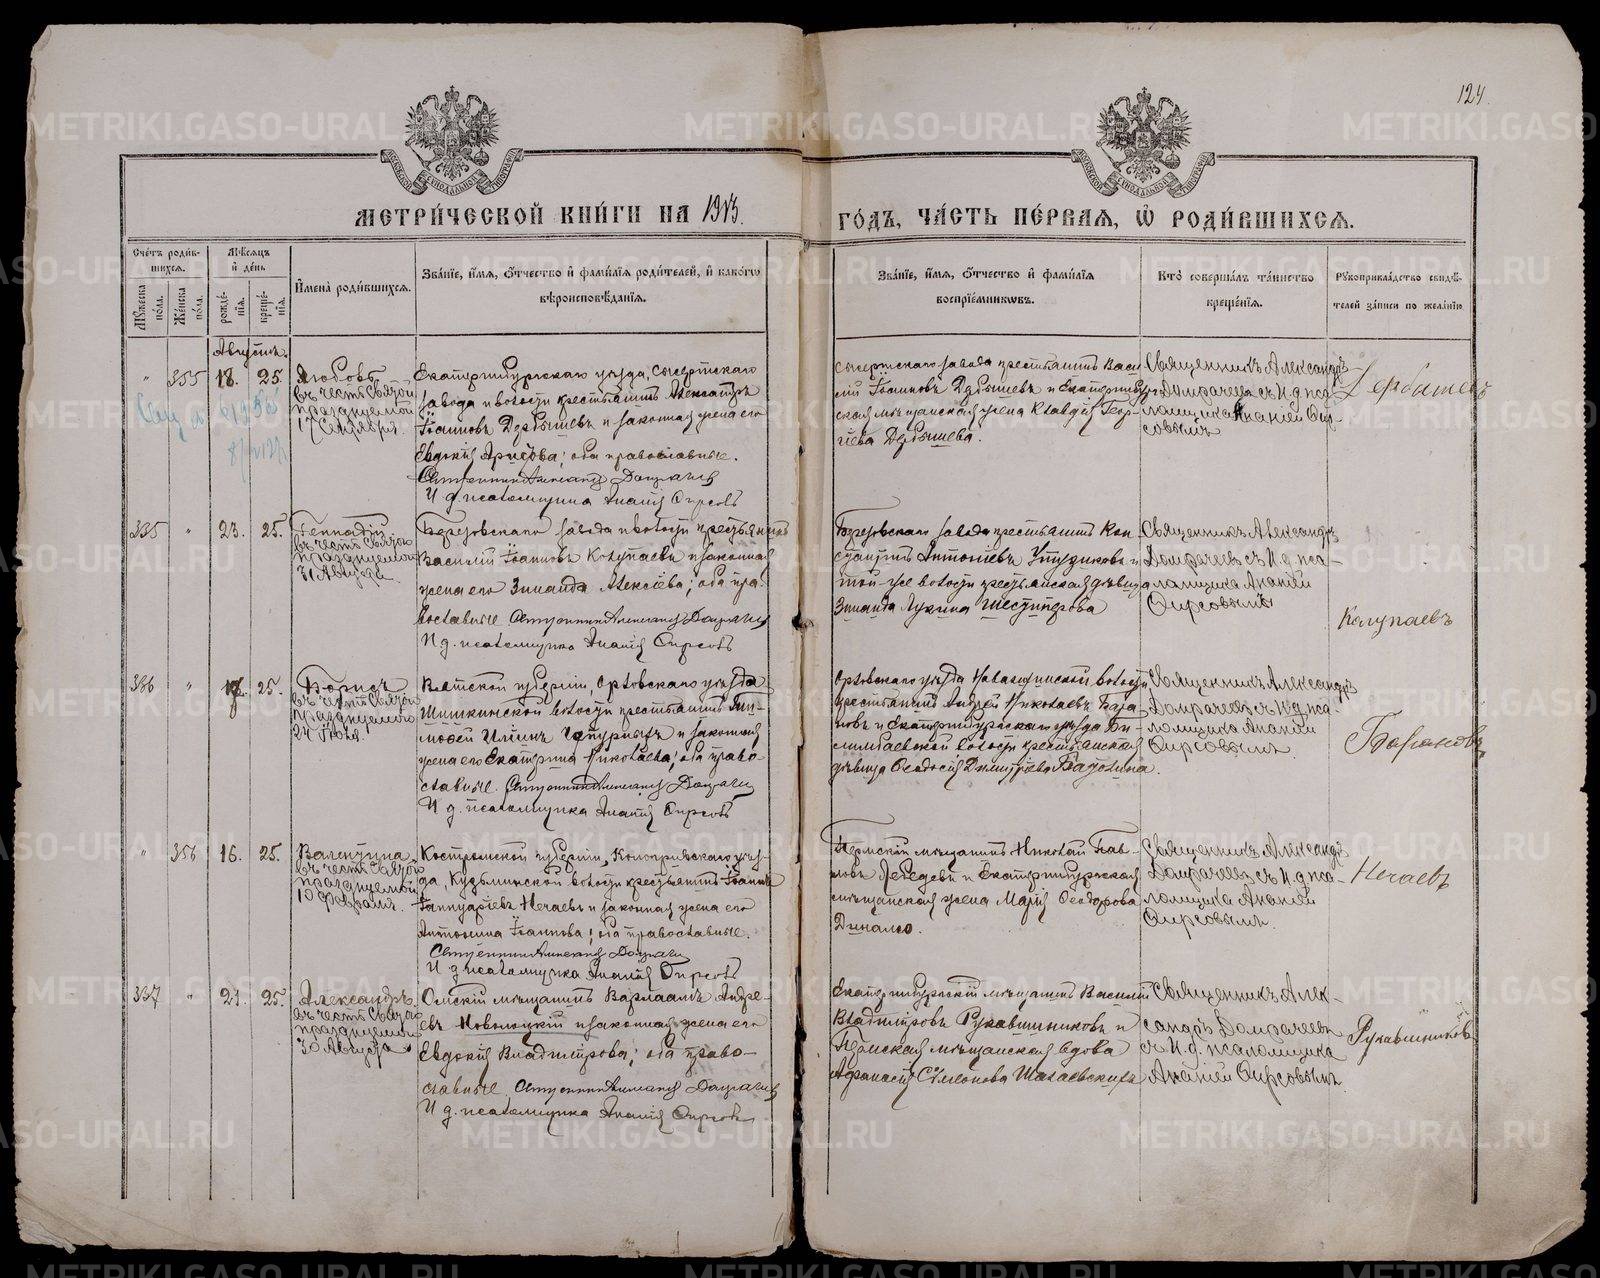 124.
МЕТРИ́ЧЕСКОЙ КНИ́ГИ НА 1913.
ГО́ДЪ, ЧА́СТЬ ПЕ́РВАѦ, Ѡ҆ РОДИ́ВШИХСѦ.
Сче́тъ роди́в-
шихсѧ.
Мꙋ́жеска по́ла.
Же́нска по́ла.
Мѣ́сѧцъ
и҆ де́нь
рожде́-
нїѧ.
креще́-
нїѧ.
И҆мена̀ роди́вшихсѧ.
Зва́нїе, и҆́мѧ, ѻ҆́тчество и҆ фами́лїѧ роди́телей, и҆ како́гѡ
вѣроисповѣ́данїѧ.
Зва́нїе, и҆́мѧ, ѻ҆́тчество и҆ фами́лїѧ
воспрїе́мникѡвъ.
Кто̀ соверша́лъ та́инство
креще́нїѧ.
Рꙋкоприкла́дство свидѣ́-
телей за́писи по жела́нїю.
Августъ.
" 355 18. 25.
Любовь
въ честь Святой
празднуемой
17 Сентября.
Екатеринбургскаго уѣзда, Сысертскаго
завода и волости крестьянинъ Александръ
Іоанновъ Дербышевъ и законная жена его
Евдокія; оба православные.
Священникъ Александръ Домрачевъ
И. д. псаломщика Ананій Фирсовъ
Сысертскаго завода крестьянинъ Васи-
лій Іоанновъ Дербышевъ и Екатеринбург-
ская мѣщанская жена Клавдія Геор-
гіева Дербышева.
Священникъ Александръ
Домрачевъ съ И. д. пса-
ломщика Ананіемъ Фир-
совымъ
Дербышевъ
335 " 23. 25.
Геннадій
въ честь Святого
празднуемаго
31 Августа.
Березовскаго завода и волости крестьянинъ
Василій Іоанновъ Колупаевъ и законная
жена его Зинаида Алексіева; оба пра-
вославные Священникъ Александръ Домрачевъ
И. д. псаломщика Ананій Фирсовъ
Березовскаго завода крестьянинъ Кон-
стантинъ Антоніевъ и
той-же волости крестьянская дѣвица
Зинаида Лукина Шестиперова
Священникъ Александръ
Домрачевъ съ И. д. пса-
ломщика Ананіемъ
Фирсовымъ
Колупаевъ
336 " 25.
Борисъ
въ честь Святого
празднуемаго
24 Іюля.
Вятской губерніи, Орловскаго уѣзда
Шишкинской волости крестьянинъ Ти-
моѳей Иліинъ и законная
жена его Екатерина Николаева; оба право-
славные. Священникъ Александръ Домрачевъ
И. д. псаломщика Ананій Фирсовъ
Орловскаго уѣзда волости
крестьянинъ Андрей Николаевъ Бара-
новъ и Екатеринбургскаго уѣзда Би-
лимбаевской волости крестьянская
дѣвица Ѳеодосія Димитріева.
Священникъ Александръ
Домрачевъ съ И. д. пса-
ломщика Ананіемъ
Фирсовымъ
Барановъ
" 356 16. 25.
Валентина
въ честь Святой
празднуемой
10 Февраля.
Костромской губерніи, Кологривскаго уѣз-
да, Кузьминской волости крестьянинъ Іоаннъ
Іаннуаріевъ Нечаевъ и законная жена его
Антонина Іоаннова; оба православные.
Священникъ Александръ Домрачевъ
И. д. псаломщика Ананій Фирсовъ
Пермскій мѣщанинъ Николай Пав-
ловъ Лебедевъ и Екатеринбургская
мѣщанская жена Марія Ѳеодорова
Динало.
Священникъ Александръ
Домрачевъ съ И. д. пса-
ломщика Ананіемъ
Фирсовымъ.
Нечаевъ
337 " 21. 25.
Александръ
въ честь Святого
празднуемаго
30 Августа
Омскій мѣщанинъ Варлаамъ Андре-
евъ Новолоцкій и законная жена его
Евдокія Владимірова; оба право-
славные Священникъ Александръ Домрачевъ
И. д. псаломщика Ананій Фирсовъ
Екатеринбургскій мѣщанинъ Василій
Владиміровъ Рукавишниковъ и
Пермская мѣщанская вдова
Симеонова
Священникъ Алек-
сандръ Домрачевъ
съ И. д. псаломщика
Ананіемъ Фирсовымъ.
Рукавишниковъ
METRIKI.GASO-URAL.RU